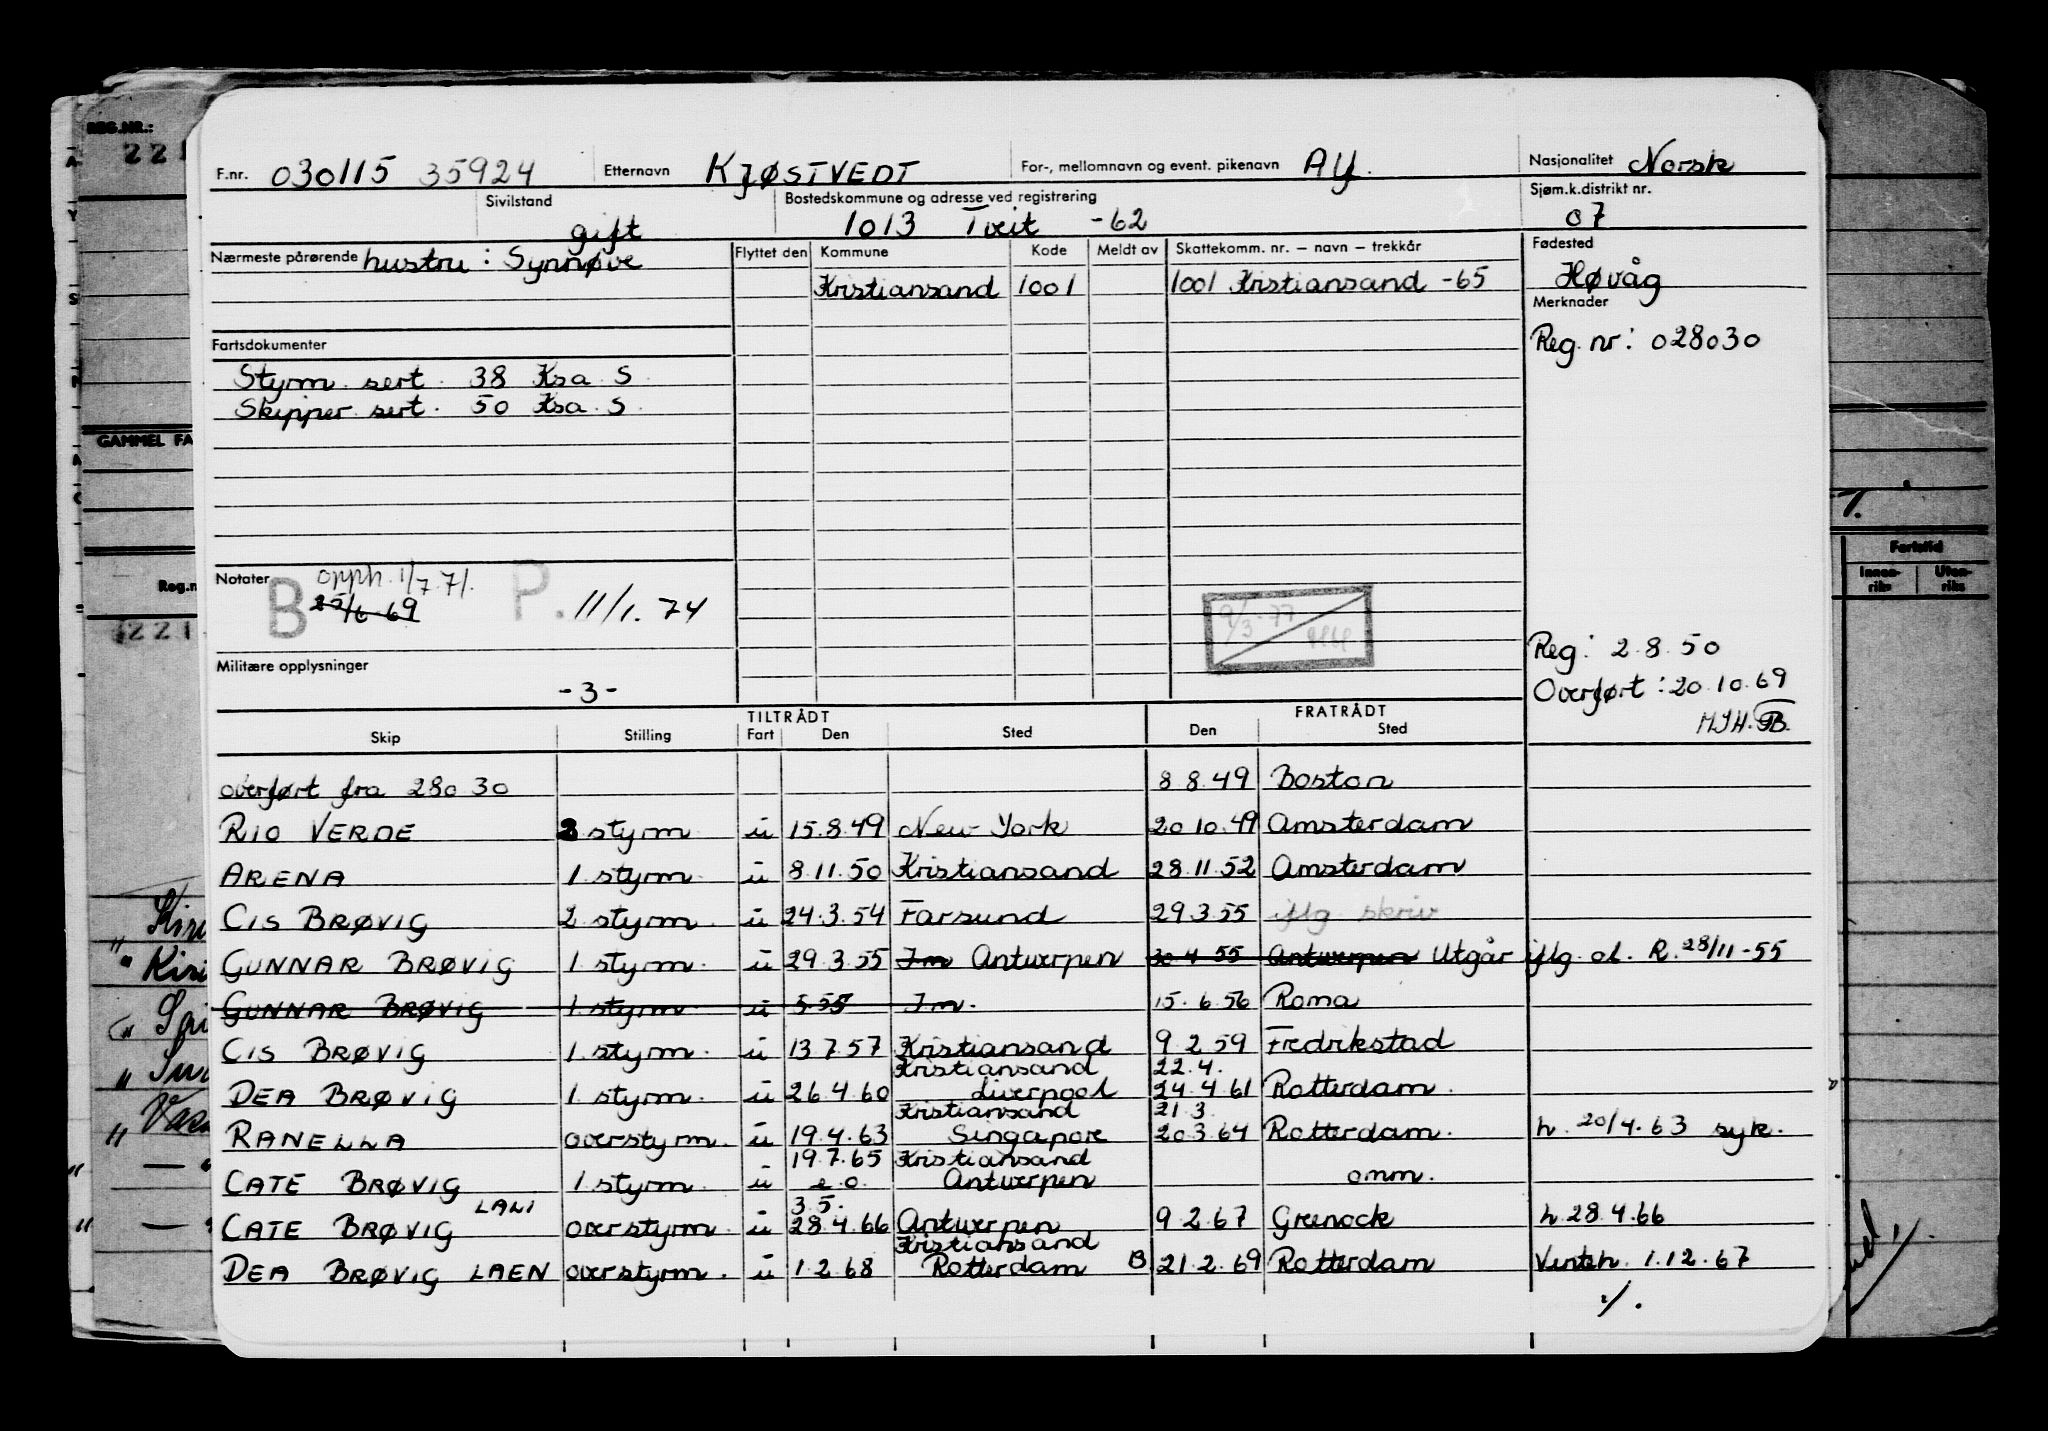 F.nr. 030115 35924 Etternavn KJØSTVEDT For-, mellomnavn og event. pikenavn Alf. Nasjonalitet Norsk
Sivilstand gift Bostedskommune og adresse ved registrering 1013 Tveit -62 Sjøm.k.distrikt nr. 07
Nærmeste pårørende hustru: Synnøve Flyttet den Kommune Kode Meldt av Skattekomm. nr. – navn – trekkår Fødested
Kristiansand 1001 1001 Kristiansand -65 Høvåg
Merknader
Reg. nr: 028030
Fartsdokumenter
Styrm. sert. 38 Ksa. S.
Skipper sert. 50 Ksa. S.
Notater B opph. 1/7.71. P. 11/1.74
25/6 69
9/3-77
Reg: 2.8.50
Militære opplysninger
-3-
Overført: 20.10.69
MJH. B.
TILTRÅDT FRATRÅDT
Skip Stilling Fart Den Sted Den Sted
overført fra 28030 8.8.49 Boston
RIO VERDE 2 styrm. u 15.8.49 New York 20.10.49 Amsterdam
ARENA 1 styrm. u 8.11.50 Kristiansand 28.11.52 Amsterdam
CIS BRØVIG 2 styrm. u 24.3.54 Farsund 29.3.55 iflg. skriv
GUNNAR BRØVIG 1 styrm. u 29.3.55 Im Antwerpen 30.4.55 Antwerpen Utgår iflg. al. R. 28/11-55
GUNNAR BRØVIG 1 styrm. u 5.55 Im. 15.6.56 Roma
CIS BRØVIG 1 styrm. u 13.7.57 Kristiansand 9.2.59 Fredrikstad
Kristiansand 22.4.
DEA BRØVIG 1 styrm. u 26.4.60 Liverpool 24.4.61 Rotterdam.
Kristiansand 21.3.
RANELLA overstyrm. u 19.4.63 Singapore 20.3.64 Rotterdam. h. 20/4.63 syk.
19.7.65 Kristiansand
CATE BRØVIG 1 styrm. u e.o. Antwerpen omm.
LALI 3.5.
CATE BRØVIG overstyrm. u 28.4.66 Antwerpen 9.2.67 Greenock h. 28.4.66
Kristiansand
DEA BRØVIG LAEN overstyrm. u 1.2.68 Rotterdam B 21.2.69 Rotterdam Venteh. 1.12.67
./.
REG.NR.:
221
GAMMEL FA
Reg.n
221
Fartstid
Innen-riks Uten-riks